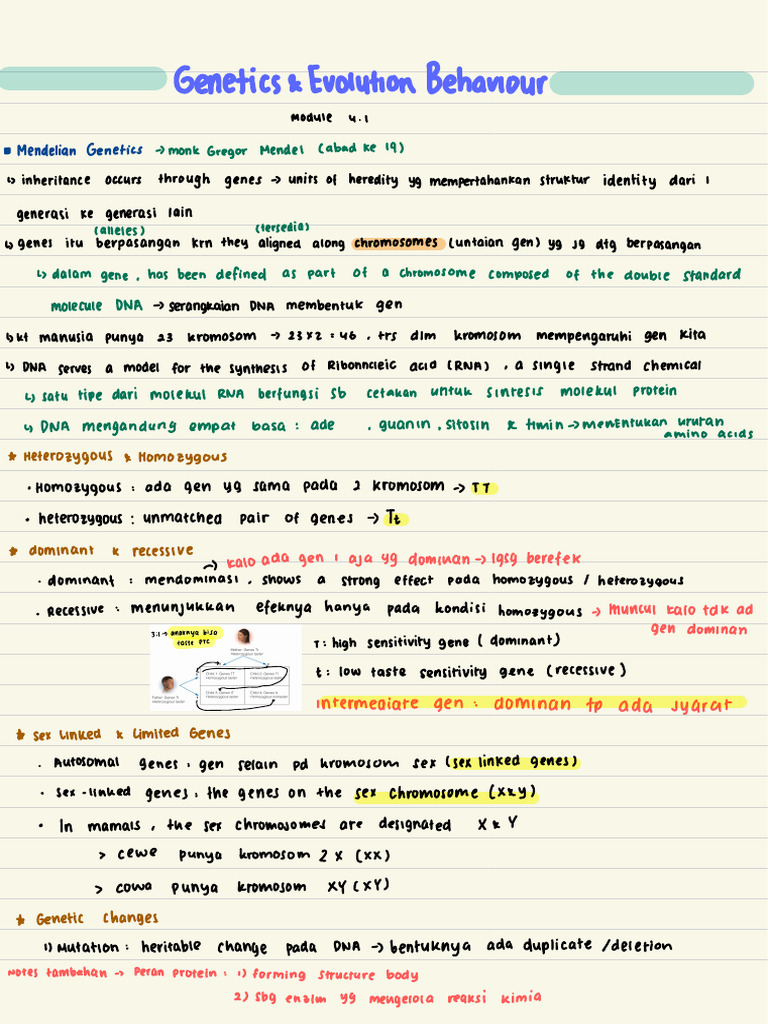 Genetics & Evolution Behaviour
Module 4.1
Mendelian Genetics → monk Gregor Mendel (abad ke 19)
↳ inheritance occurs through genes → units of heredity yg mempertahankan struktur identity dari 1
generasi ke generasi lain
(alleles) (tersedia)
↳ genes itu berpasangan krn they aligned along chromosomes (untaian gen) yg jg dtg berpasangan
↳ dalam gene, has been defined as part of a chromosome composed of the double standard
molecule DNA → serangkaian DNA membentuk gen
↳ kt manusia punya 23 kromosom → 23x2 = 46, trs dlm kromosom mempengaruhi gen kita
↳ DNA serves a model for the synthesis of Ribonncleic acid (RNA), a single strand chemical
↳ satu tipe dari molekul RNA berfungsi sb cetakan untuk sintesis molekul protein
↳ DNA mengandung empat basa : ade , guanin, sitosin & timin → menentukan urutan
amino acids
* Heterozygous & Homozygous
• Homozygous : ada gen yg sama pada 2 kromosom → TT
• heterozygous : unmatched pair of genes → Tt
* dominant & recessive
→ kalo ada gen 1 aja yg dominan → lgsg berefek
• dominant : mendominasi, shows a strong effect pada homozygous / heterozygous
• Recessive : menunjukkan efeknya hanya pada kondisi homozygous → muncul kalo tdk ad
gen dominan
3:1 → anaknya bisa
taste PTC
Mother: Genes Tt
Heterozygous taster
Father: Genes Tt
Heterozygous taster
Child 1: Genes TT
Homozygous taster
Child 2: Genes Tt
Heterozygous taster
Child 3: Genes tT
Heterozygous taster
Child 4: Genes tt
Homozygous nontaster
T : high sensitivity gene (dominant)
t : low taste sensitivity gene (recessive)
intermediate gen : dominan tp ada syarat
* Sex Linked & Limited Genes
• Autosomal genes : gen selain pd kromosom sex (sex linked genes)
• sex-linked genes : the genes on the sex chromosome (X&Y)
• In mamals, the sex chromosomes are designated X & Y
> cewe punya kromosom 2 X (XX)
> cowa punya kromosom XY (XY)
* Genetic Changes
1) Mutation : heritable change pada DNA → bentuknya ada duplicate / deletion
Notes tambahan → Peran protein : 1) forming structure body
2) sbg enzim yg mengelola reaksi kimia